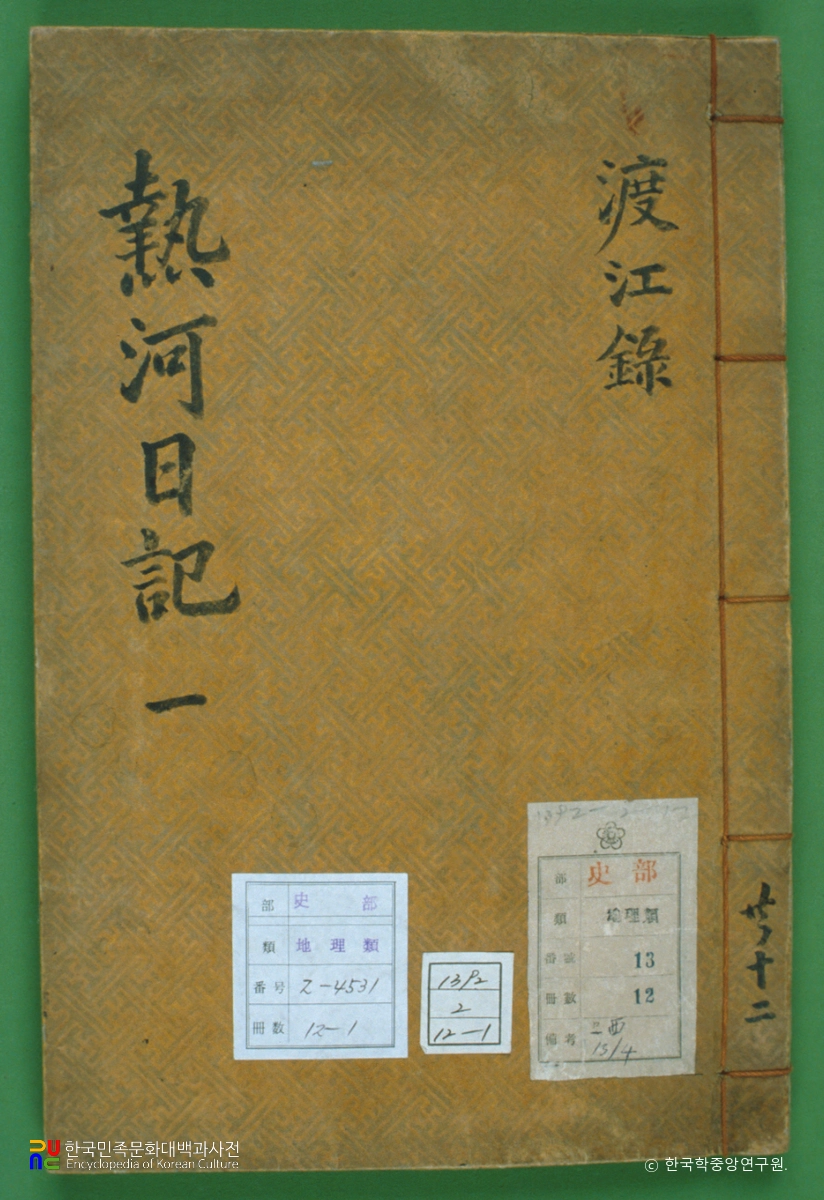 渡江錄
熱河日記 一
共十二
部 史部
類 地理類
番号 Z-4531
冊数 12-1
1392
2
12-1
部 史部
類 地理類
番號 13
冊數 12
備考
15/4
한국민족문화대백과사전
Encyclopedia of Korean Culture
© 한국학중앙연구원.